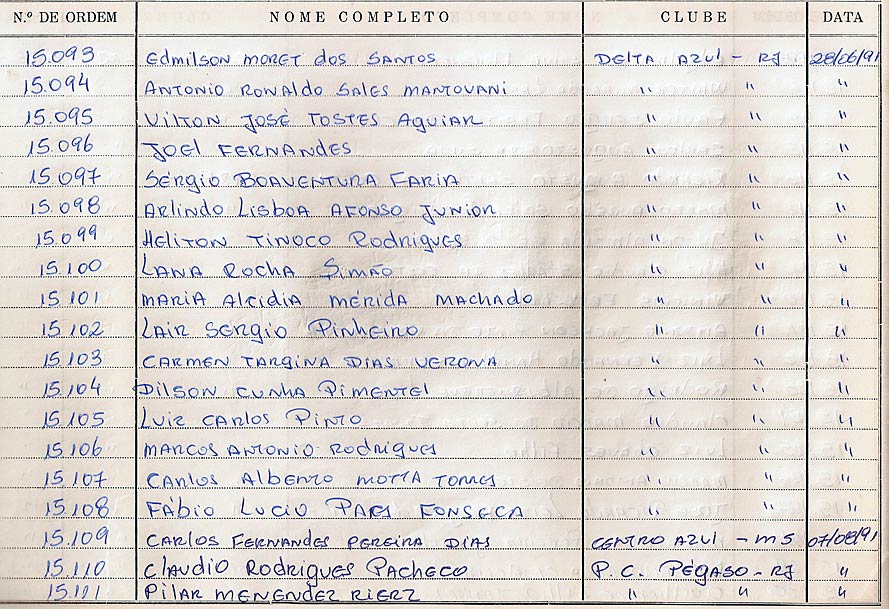 N.º DE ORDEM NOME COMPLETO CLUBE DATA
15.093 Edmilson Moret dos Santos Delta Azul - RJ 28/06/91
15.094 Antonio Ronaldo Sales Mantovani " " "
15.095 Vilton José Tostes Aguiar " " "
15.096 Joel Fernandes " " "
15.097 Sérgio Boaventura Faria " " "
15.098 Arlindo Lisboa Afonso Junior " " "
15.099 Heliton Tinoco Rodrigues " " "
15.100 Lana Rocha Simão " " "
15.101 Maria Alcidia Mérida Machado " " "
15.102 Lair Sergio Pinheiro " " "
15.103 Carmen Targina Dias Verona " " "
15.104 Dilson Cunha Pimentel " " "
15.105 Luiz Carlos Pinto " " "
15.106 Marcos Antonio Rodrigues " " "
15.107 Carlos Alberto Motta Torres " " "
15.108 Fábio Lucio Paes Fonseca " " "
15.109 Carlos Fernandes Pereira Dias Centro Azul - MS 07/08/91
15.110 Claudio Rodrigues Pacheco P. C. Pégaso - RJ "
15.111 Pilar Menendez Rierz " " "